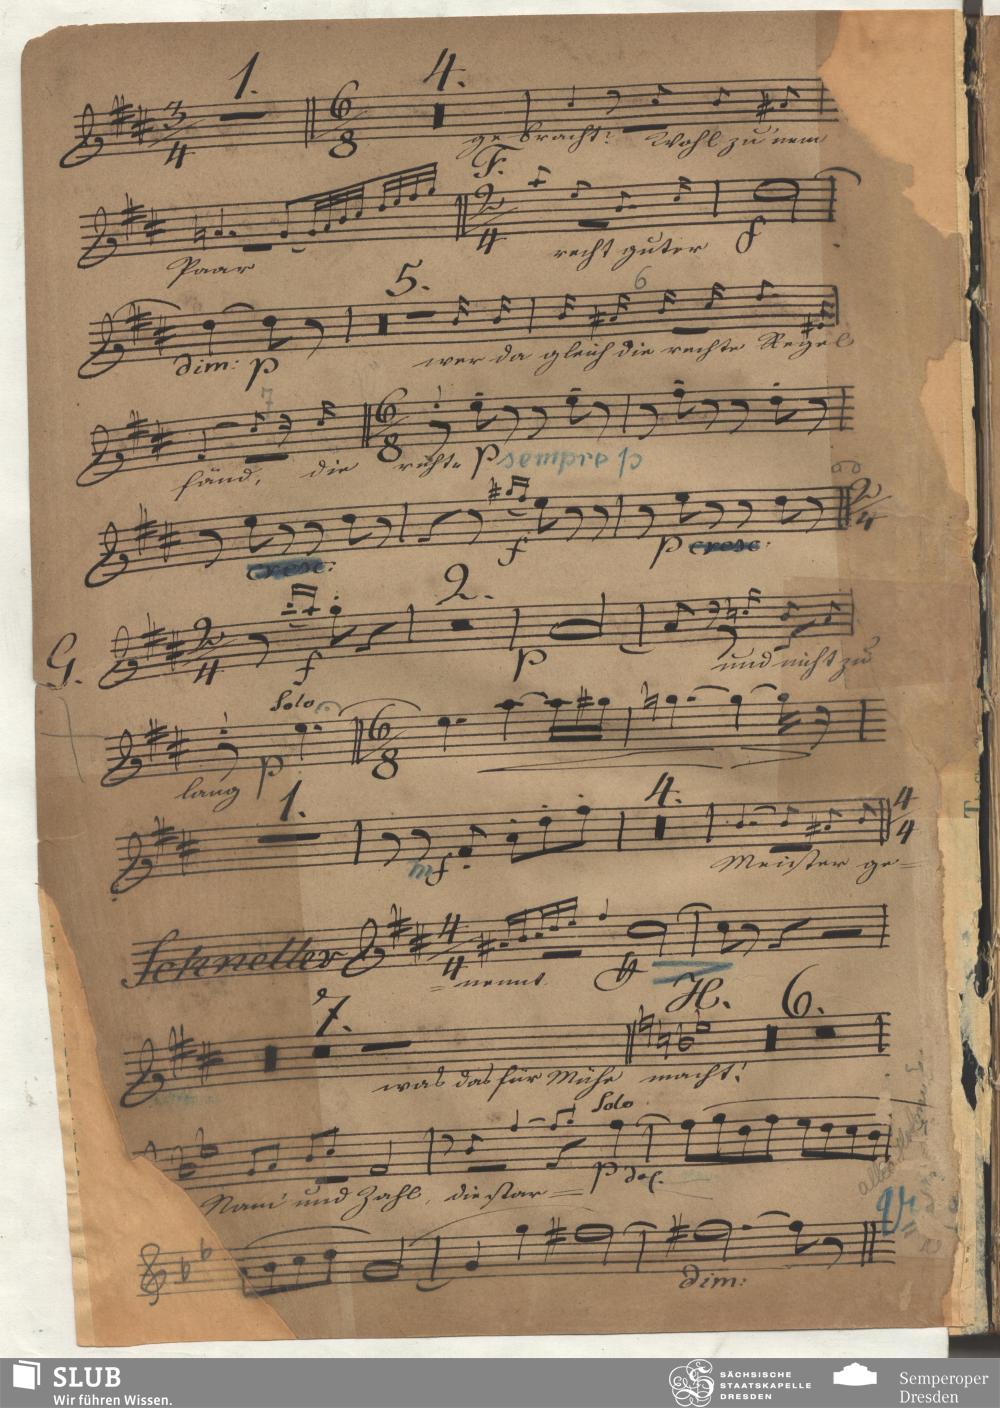 1. 4.
3/4 6/8
gebracht! Wohl zu nem
F.
2/4
Paar recht guter f
5. 6
dim: p wer da gleich die rechte Regel
7
6/8
fänd, die rechte p sempre p
2/4
cresc: f p cresc:
G. 2.
2/4
f p und nicht zu
Solo
6/8
lang p
1. 4. 4/4
mf Meister ge=
Schneller 4/4
=nennt
H.
7. 6.
was das für Mühe macht!
Solo
Nam' und Zahl, die star= p dol.
dim:
SLUB
Wir führen Wissen.
SÄCHSISCHE
STAATSKAPELLE
DRESDEN
Semperoper
Dresden